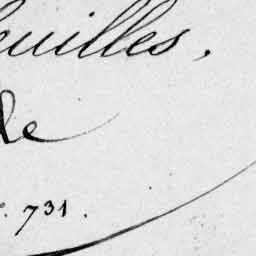 euilles.
de
. 731.